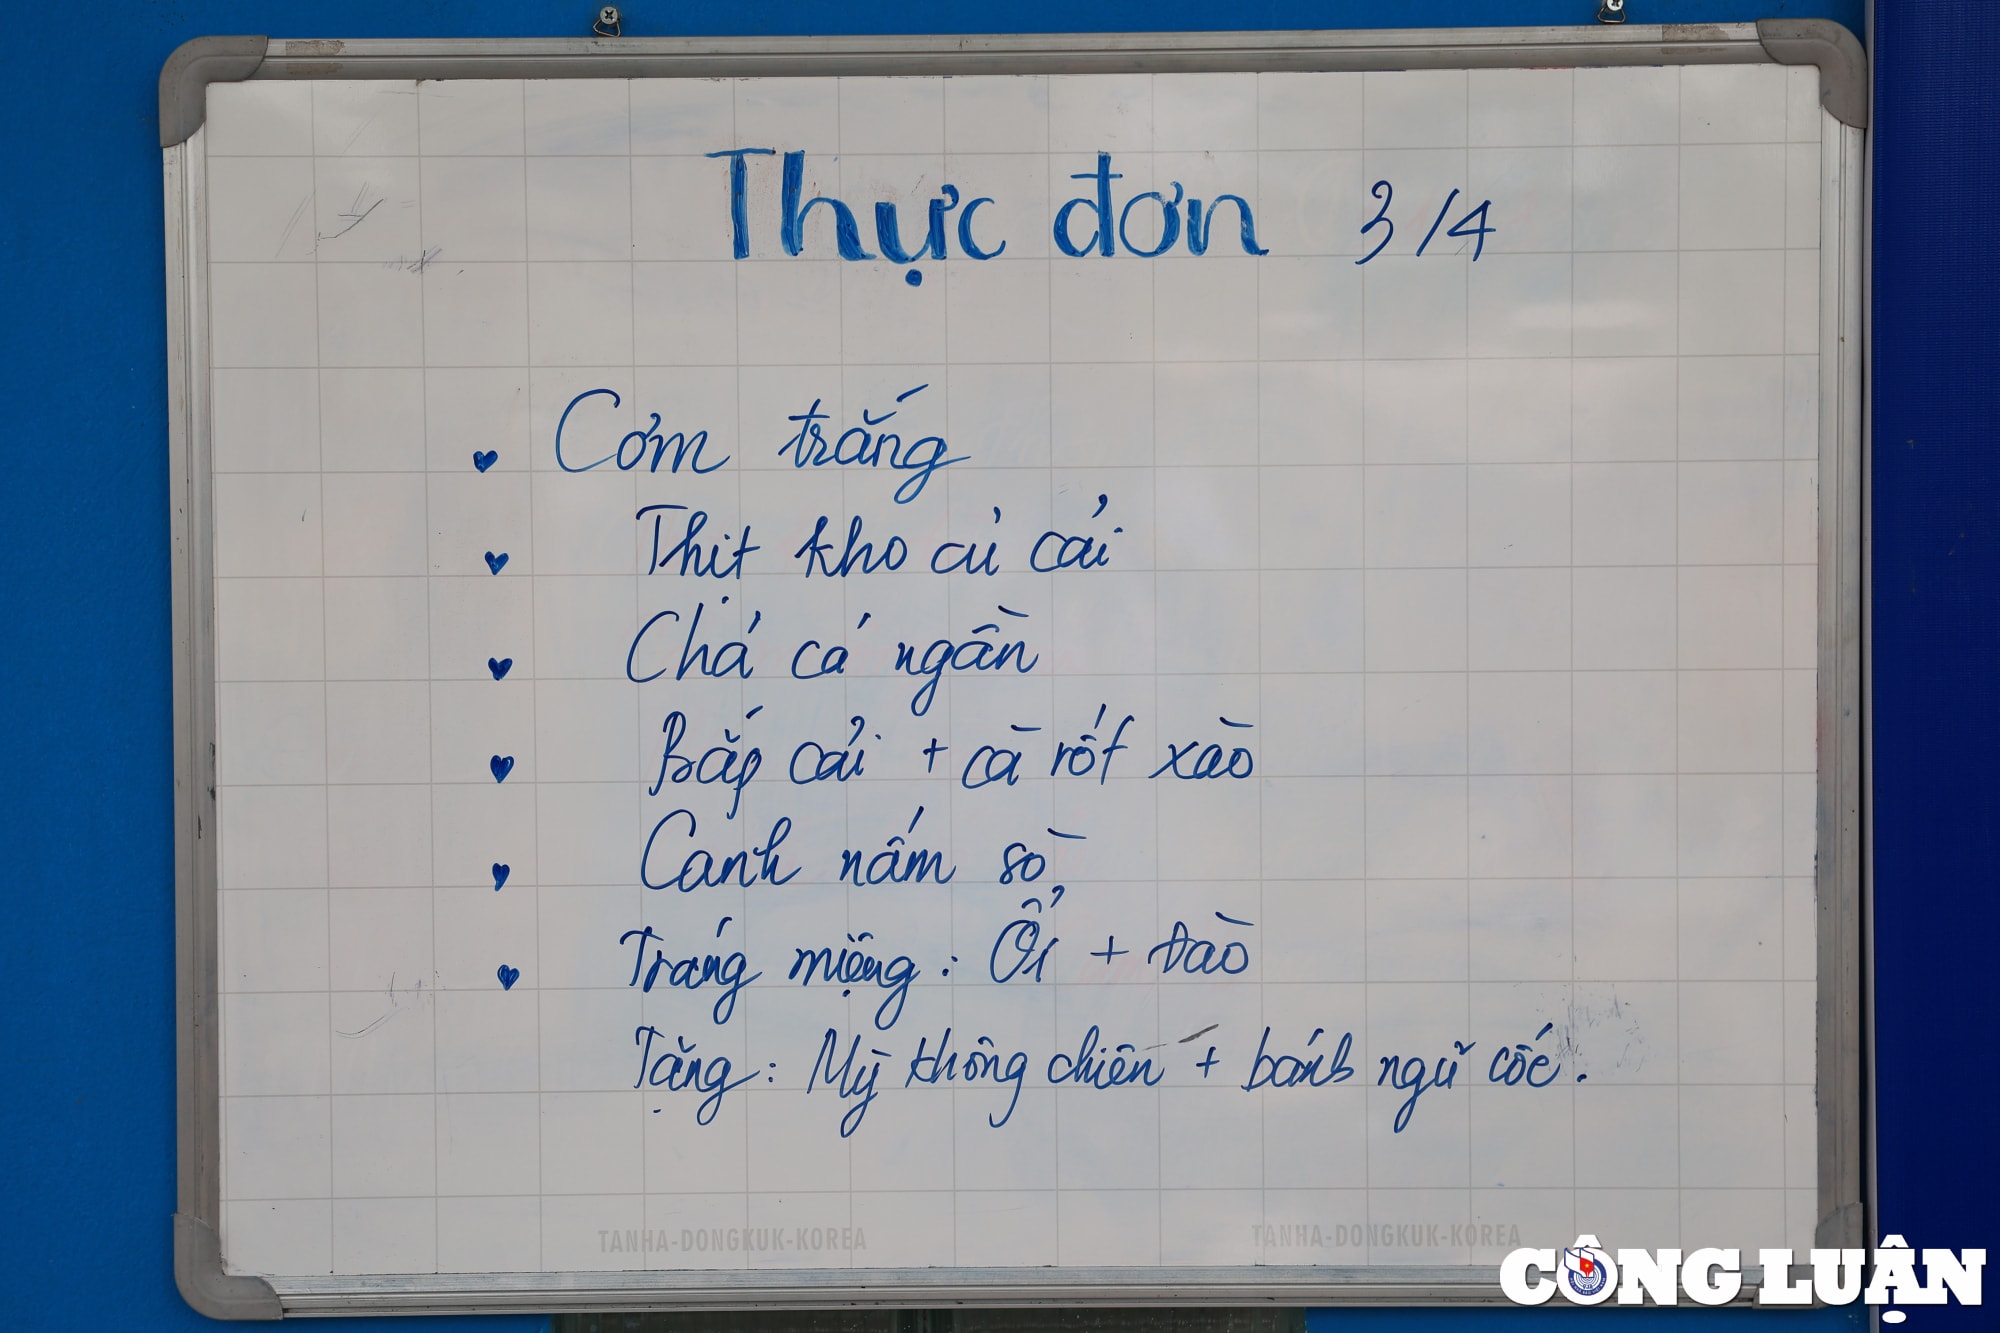 Thực đơn 3/4
Cơm trắng
Thịt kho củ cải
Chả cá ngần
Bắp cải + cà rốt xào
Canh nấm sò
Tráng miệng: Ổi + Đào
Tặng: Mỳ không chiên + bánh ngũ cốc.
TANHA-DONGKUK-KOREA TANHA-DONGKUK-KOREA
CÔNG LUẬN